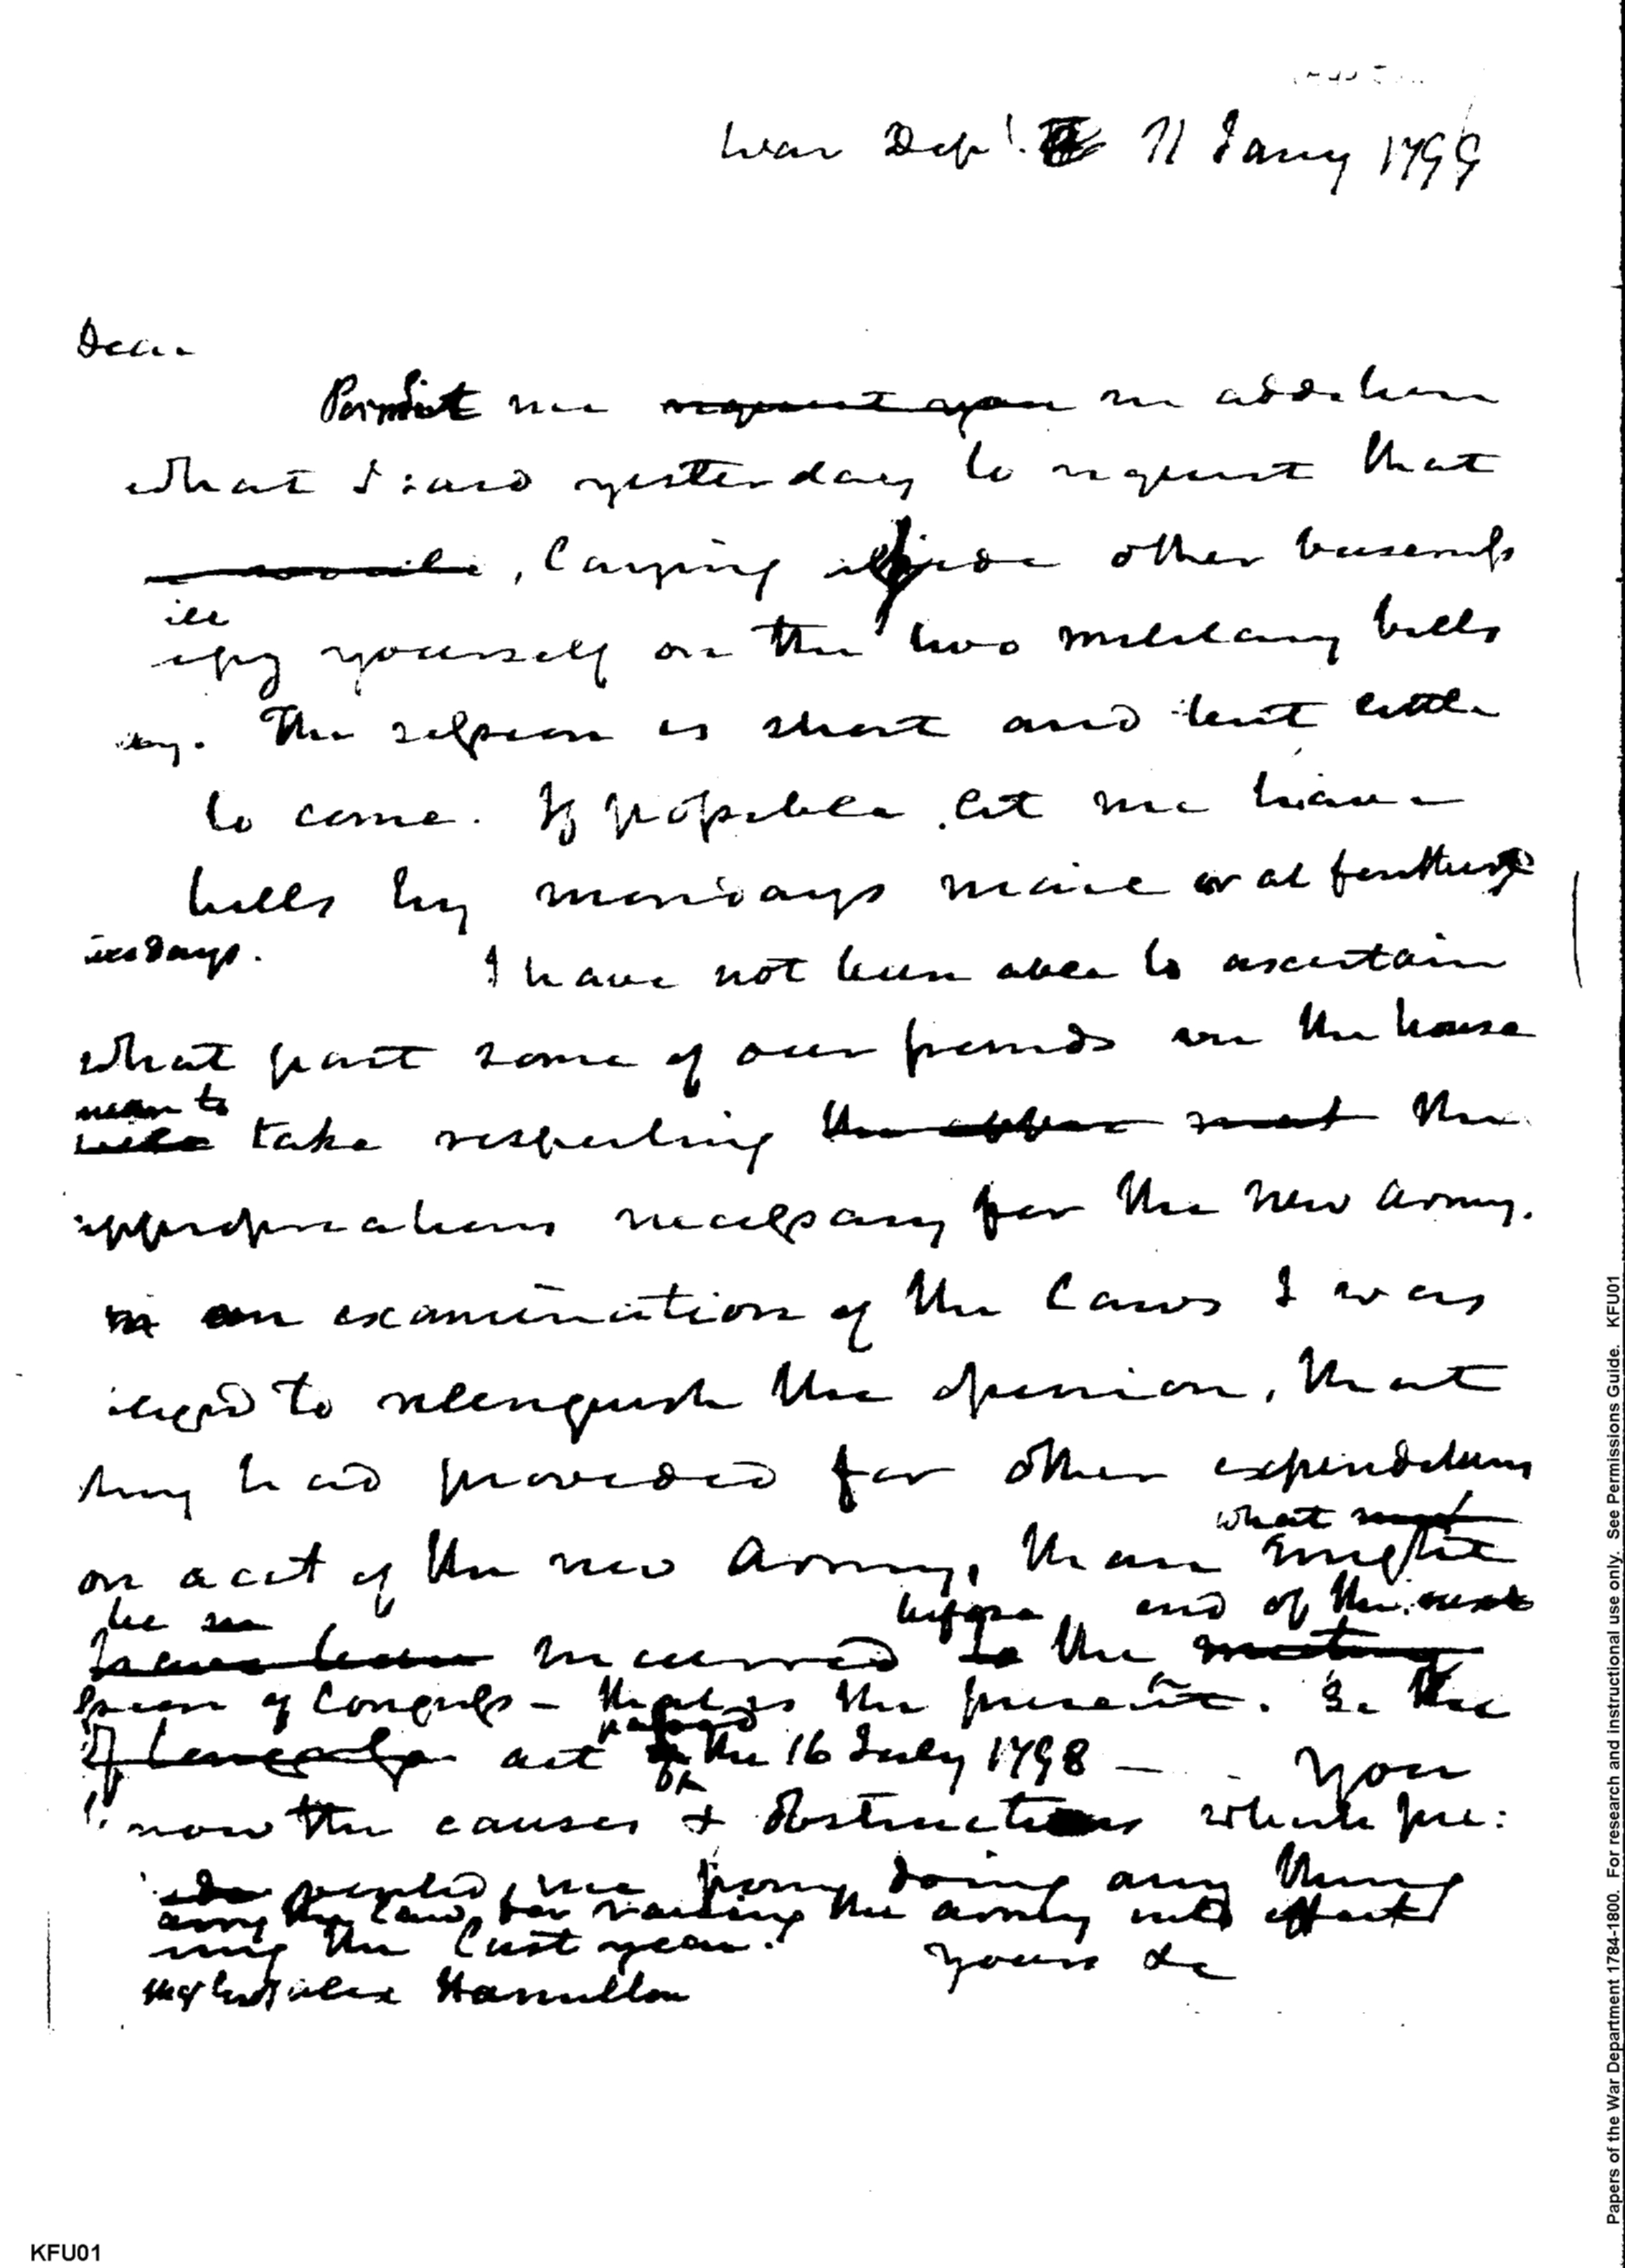 War Dept. 11 Jany 1799
Dear
Permit me request you in addition
what I said yesterday to request that
, laying aside other business
ill
upy yourself on the two military bills
The session is short and but little
to come. If possible let me have
bills by mondays maile or at furthest
uesdays. I have not been able to ascertain
what part some of our friends in the house
mean to
will take respecting the the
appropriations necessary for the new army.
in an examination of the laws I was
iliged to relinquish the opinion, that
they had provided for other expenditures
what
on acct of the new Army, than might
be before end of the next
have been incurred to the meeting
ssion of Congress - that is the present. See the
passed
of Congress act on the 16 July 1798 - you
know the causes & obstructions which pre:
vented me from doing any thing
arry the law for raising the army into effect
ring the last year. yours &c
Alex Hamilton
Papers of the War Department 1784-1800. For research and instructional use only. See Permissions Guide. KFU01
KFU01